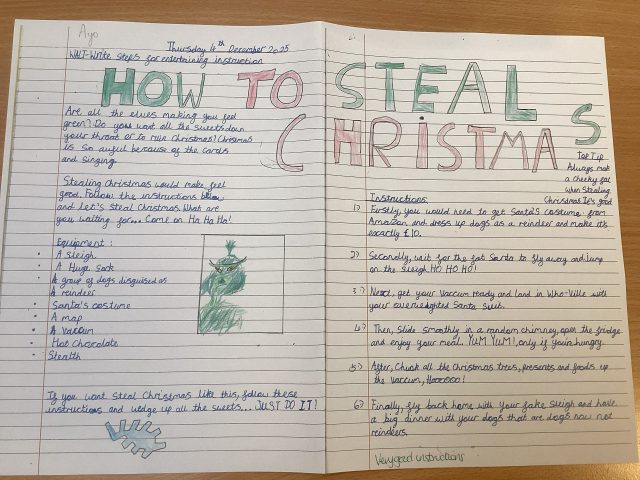 Ayo
Thursday 4th December 2025
WALT-Write steps for entertaining instruction
HOW TO STEAL
CHRISTMAS
Are all the elves making you feel
green? Do you want all the sweets down
your throat or to ruin Christmas! Christmas
is so awful because of the cards
and singing.
Stealing Christmas would make feel
good. Follow the instructions below
and let's steal Christmas. What are
you waiting for... Come on Ha Ha Ha!
Equipment:
• A sleigh
• A Huge Sack
• A group of dogs disguised as
A reindeer
• Santa's costume
• A map
• A vaccum
• Hot Chocolate
• Stealth
If you want steal Christmas like this, follow these
instructions and wedge up all the sweets... JUST DO IT!
Top Tip
Always make
a cheeky
when stealing
Christmas It's good
Instructions:
1) Firstly, you would need to get Santa's costume from
Amazon and dress up dogs as a reindeer and make it's
exactly £10.
2) Secondly, wait for the fat Santa to fly away and jump
on the sleigh. HO HO HO!
3) Next, get your Vaccum ready and land in Who-Ville with
your Santa Suit.
4) Then, Slide smoothly in a random chimney, open the fridge
and enjoy your meal. YUM YUM!, only if you'n hungry.
5) After, Chuck all the Christmas trees, presents and foods up
the Vaccum,
6) Finally, fly back home with your fake sleigh and have
a big dinner with your dogs that are dogs now not
reindeers.
Very good instructions